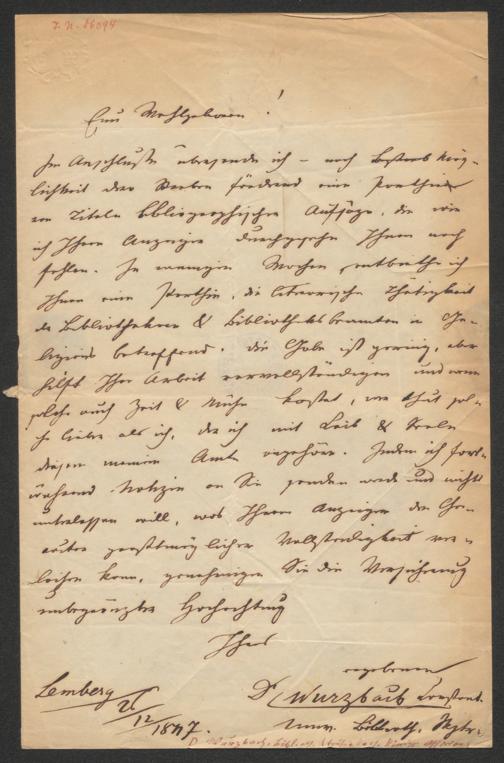 I. N. 86094
Euer Wohlgeboren!
Im Anschlusse übersende ich – nach Möglichkeit
das Streben fördernd eine Parthie
von Titeln bibliographischer Aufsäze, die wie
ich Ihren Anzeiger durchgesehen Ihnen noch
fehlen. In wenigen Wochen ich
Ihnen eine Parthie, die literarische Thätigkeit
der Bibliothekare & Bibliotheksbeamten in Ga-
lizien betreffend. Die Gabe ist gering, aber
hilft Ihre Arbeit vervollständigen und wenn
solche auch Zeit & Mühe kostet, wer thut sol-
che lieber als ich, der ich mit Leib & Seele
diesem meinem Amte angehöre. Indem ich fort-
während Notizen an Sie senden werde und nichts
unterlassen will, was Ihrem Anzeiger den Cha-
rakter größtmöglicher Vollständigkeit ver-
leihen kann, genehmigen Sie die Versicherung
unbegrenzter Hochachtung
Ihres
ergebenen
Dr Wurzbach Constant.
Univ. Biblioth.
Lemberg
26/12 1847.